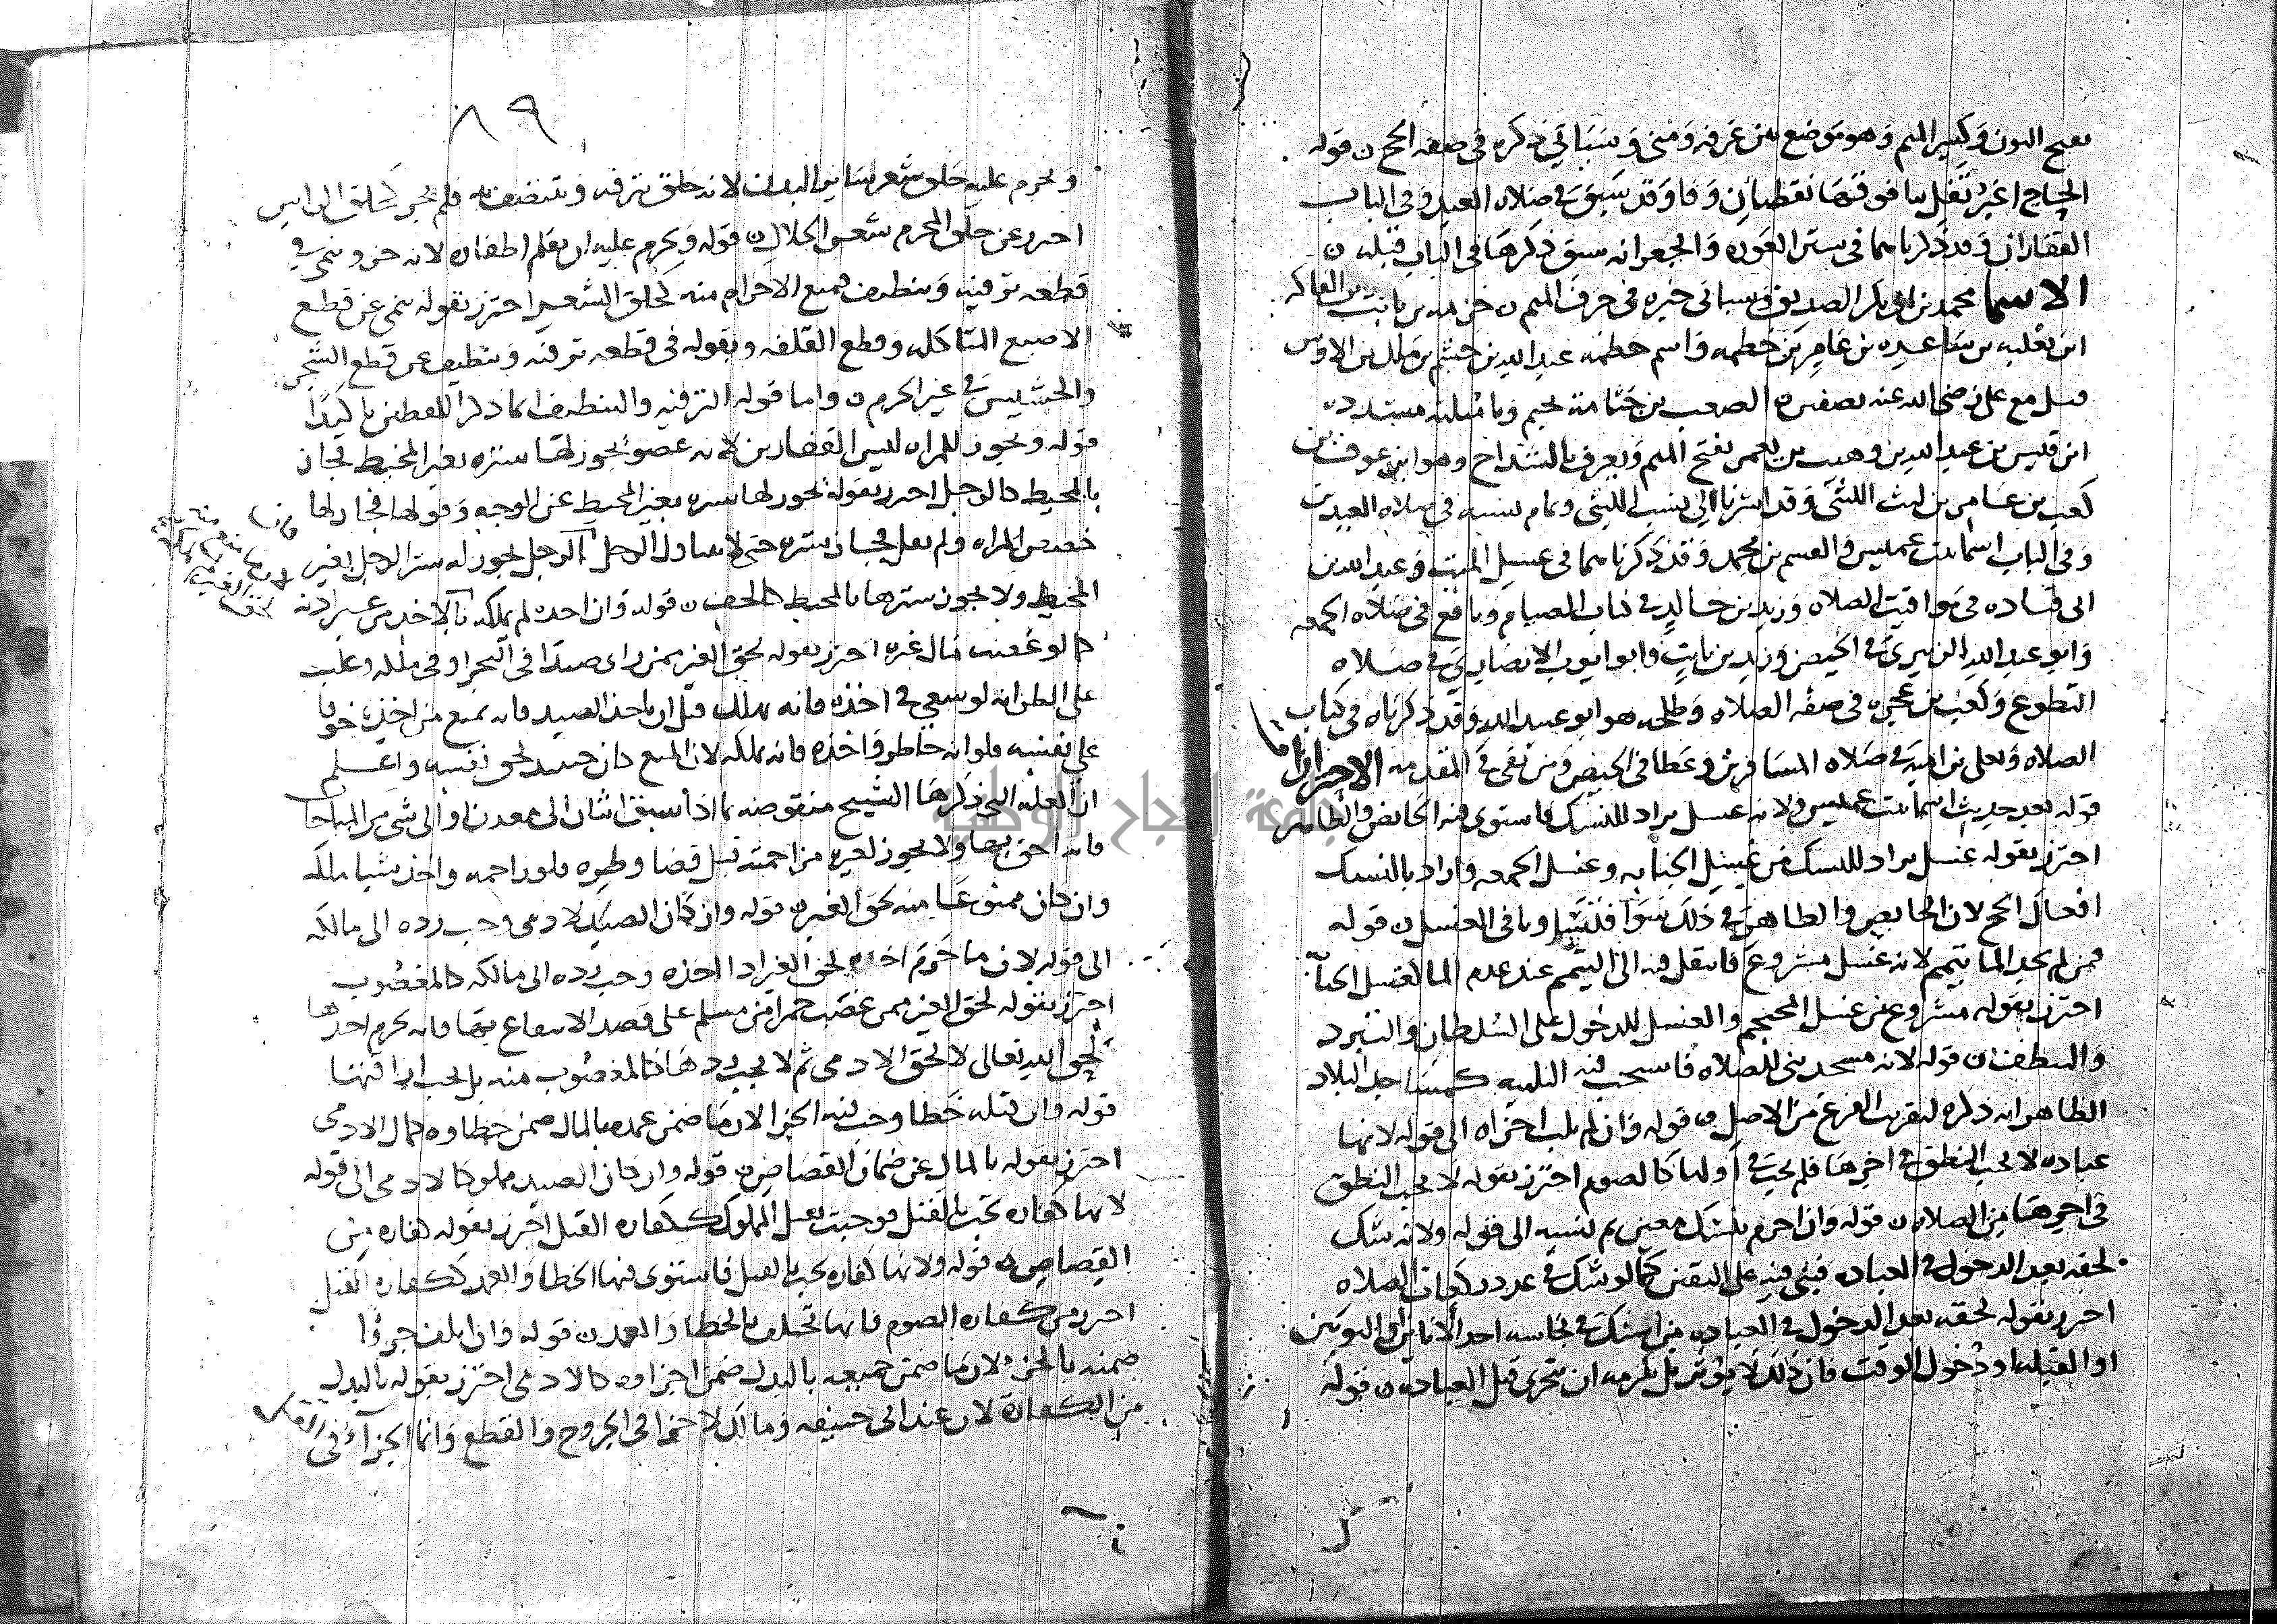 بفتح النون وكسر الميم وهو موضع بين عرفه ومنى وسياتي ذكره في صفه الحج ن قوله
الحجاج اغبر ثفل بنا فوقها نقطتان وفا وقد سبق في صلاه العيد وفي الباب
القفازان وقد ذكرناهما في ستر العوره والجعرانه سبق ذكرها في الباب قبله ن
الاسما محمد بن ابي بكر الصديق وسياتي خبره في حرف الميم ن خزيمه بن ثابت بن الفاكه
ابن ثعلبه بن ساعده بن عامر بن خطمه واسم خطمه عبد الله بن جشم بن ملك بن الاوس
قتل مع علي رضي الله عنه بصفين ن الصعب بن جثامة بجيم وثا مثلثه مشدده
ابن قيس بن عبد الله بن وهب بن يعمر بفتح الميم ويعرف بالشداخ وهو ابن عوف بن
كعب بن عامر بن ليث الليثي وقد اشرنا الى نسب الليثي وتمام نسبه في صلاه العيدين
وفي الباب اسما بنت عميس والقسم بن محمد وقد ذكرناهما في غسل الميت وعبد الله بن
ابي قتاده في مواقيت الصلاه وزيد بن خالد في كتاب الصيام ونافع في صلاه الجمعه
وابو عبد الله الزبيري في الحيض وزيد بن ثابت وابو ايوب الانصاري في صلاه
التطوع وكعب بن عجره في صفه الصلاه وطلحه هو ابو عبيد الله وقد ذكرناه في كتاب
الصلاه ويعلى بن اميه في صلاه المسافر وعطا في الحيض ومن بقي في المقدمه الاحترازات
قوله بعد حديث اسما بنت عميس ولانه غسل يراد للنسك فاستوى فيه الحائض والطاهر
احترز بقوله غسل يراد للنسك من غسل الجنابه وغسل الجمعه واراد بالنسك
افعال الحج لان الحايض والطاهر في ذلك سوا وفي الغسل ن قوله
فمن لم يجد الما تيمم لانه غسل مشروع فانتقل فيه الى التيمم عند عدم الما كغسل الجنابه
احترز بقوله مشروع عن غسل المحتجم والغسل للدخول على السلطان والتبرد
والتنظف ن قوله لانه مسجد بني للصلاه فاستحب فيه التلبيه كمساجد البلاد
الظاهر انه ذكره لتقريب الفرع من الاصل ن قوله وان لم يلب اجزاه الى قوله لانها
عباده لا يجب النطق في اخرها فلم يجب في اولها كالصوم احترز بقوله لا يجب النطق
في اخرها من الصلاه ن قوله وان احرم بنسك معين ثم نسيه الى قوله ولانه شك
لحقه بعد الدخول في العباده فبني فيه على اليقين كما لو شك في عدد ركعات الصلاه
احترز بقوله لحقه بعد الدخول في العباده من الشك في نجاسه احد الانائين او الثوبين
او القبله او دخول الوقت فان ذلك لا يوثر بل يلزمه ان يتحرى قبل العباده ن قوله
٨٩
ويحرم عليه حلق شعر سائر البدن لانه حلق يترفه ويتنظف به فلم يجز كحلق الراس
احترز عن حلق المحرم شعر الحلال ن قوله ويحرم عليه ان يقلم اظفاره لانه جزو ينمي في
قطعه ترفيه وتنظيف فمنع الاحرام منه كحلق الشعر احترز بقوله ينمي عن قطع
الاصبع المتاكله وقطع القلفه وبقوله في قطعه ترفيه وتنظيف عن قطع الشجر
والحشيش في غير الحرم ن واما قوله الترفيه والتنظيف انما ذكر اللفظين تاكيدا
قوله ويجوز للمراه لبس القفازين لانه عضو يجوز لها ستره بغير المخيط فجاز
بالمخيط كالرجل احترز بقوله يجوز لها ستره بغير المخيط عن الوجه وقولها فجاز لها
خصص المراه ولم يقل فجاز ستره حتى لا يتناول الرجل الرجل يجوز له ستر الرجل بغير
المخيط ولا يجوز سترها بالمخيط كالخف ن قوله وان اخذه لم يملكه بالاخذ من غير اذنه
كما لو غصب مال غيره احترز بقوله لحق الغير ممن راى صيدا في البحر او في ملكه وغلب
على الظن انه لو سعى في اخذه فانه يهلك قبل ان ياخذ الصيد فانه يمنع من اخذه خوفا
على نفسه فلو انه خاطر واخذه فانه يملكه لان المنع كان حينئذ لحق نفسه واعلم
ان العله التي ذكرها الشيخ منقوضه بما اذا سبق اثنان الى معدن او الى شي من المباحات
فانه احق بها ولا يجوز لغيره مزاحمته قبل قضا وطره فلو زاحمه واخذ شيا ملكه
وان كان ممنوعا منه لحق الغير ن قوله وان كان الصيد لادمي وجب رده الى مالكه
الى قوله لان ما حرم اخذه لحق الغير اذا اخذه وجب رده الى مالكه كالمغصوب
احترز بقوله لحق الغير ممن غصب خمرا من مسلم على قصد الانتفاع بها فانه يحرم اخذها
لحق الله تعالى لا لحق الادمي ثم لا يجب ردها الى المغصوب منه بل يجب اراقتها
قوله وان قتله خطا وجب فيه الجزا لان ما ضمن عمده بالمال ضمن خطاوه كمال الادمي
احترز بقوله بالمال عن ضمان القصاص ن قوله وان كان الصيد مملوكا لادمي الى قوله
لانها كفاره تجب بالقتل فوجبت بقتل المملوك ككفاره القتل احترز بقوله كفاره من
القصاص ن قوله ولانها كفاره تجب بالقتل فاستوى فيها الخطا والعمد ككفاره القتل
احترز من كفاره الصوم فانها تختلف بالخطا والعمد ن قوله وان اتلف جزوا
ضمنه بالجزء لان ما ضمن جميعه بالبدل ضمن اجزاوه كالادمي احترز بقوله بالبدل
من الكفارة لان عند ابي حنيفه ومالك لا جزا في الجروح والقطع وانما الجزآء في النفس
جامعة النجاح الوطنية